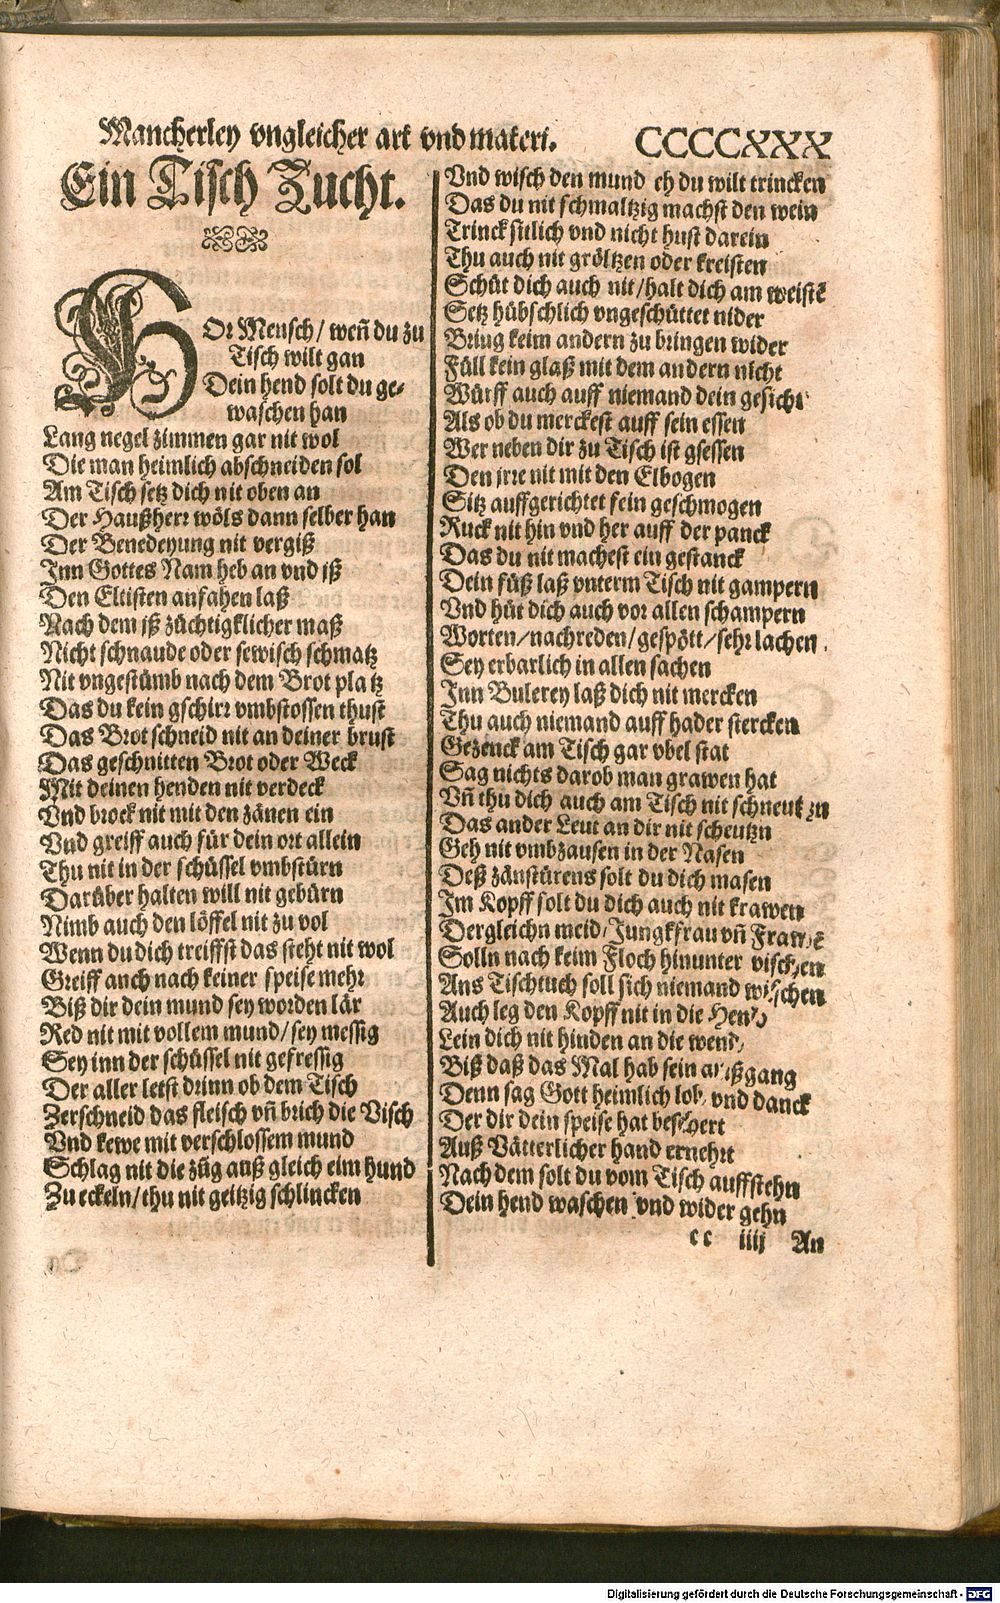 Mancherley vngleicher art vnd materi.
CCCCXXX
Ein Tisch Zucht.
HOr Mensch / weñ du zu
Tisch wilt gan
Dein hend solt du ge-
waschen han
Lang negel zimmen gar nit wol
Die man heimlich abschneiden sol
Am Tisch setz dich nit oben an
Der Haußherr wöls dann selber han
Der Benedeyung nit vergiß
Inn Gottes Nam heb an vnd iß
Den Eltisten anfahen laß
Nach dem iß züchtigklicher maß
Nicht schnaude oder sewisch schmatz
Nit vngestümb nach dem Brot platz
Das du kein gschirr vmbstossen thust
Das Brot schneid nit an deiner brust
Das geschnitten Brot oder Weck
Mit deinen henden nit verdeck
Vnd brock nit mit den zänen ein
Vnd greiff auch für dein ort allein
Thu nit in der schüssel vmbstürn
Darüber halten will nit gebürn
Nimb auch den löffel nit zu vol
Wenn du dich treiffst das steht nit wol
Greiff auch nach keiner speise mehr
Biß dir dein mund sey worden lär
Red nit mit vollem mund / sey messig
Sey inn der schüssel nit gefressig
Der aller letst drinn ob dem Tisch
Zerschneid das fleisch vñ brich die Visch
Vnd kewe mit verschlossem mund
Schlag nit die züg auß gleich eim hund
Zu eckeln / thu nit geitzig schlincken
Vnd wisch den mund eh du wilt trincken
Das du nit schmaltzig machst den wein
Trinck sitlich vnd nicht hust darein
Thu auch nit gröltzen oder kreisten
Schüt dich auch nit / halt dich am weistẽ
Setz hübschlich vngeschüttet nider
Bring keim andern zu bringen wider
Füll kein glaß mit dem andern nicht
Würff auch auff niemand dein gesicht
Als ob du merckest auff sein essen
Wer neben dir zu Tisch ist gsessen
Den jrre nit mit den Elbogen
Sitz auffgerichtet fein geschmogen
Ruck nit hin vnd her auff der panck
Das du nit machest ein gestanck
Dein füß laß vnterm Tisch nit gampern
Vnd hüt dich auch vor allen schampern
Worten / nachreden / gespött / sehr lachen
Sey erbarlich in allen sachen
Inn Bulerey laß dich nit mercken
Thu auch niemand auff hader stercken
Gezenck am Tisch gar vbel stat
Sag nichts darob man grawen hat
Vñ thu dich auch am Tisch nit schneutzn
Das ander Leut an dir nit scheutzn
Geh nit vmbzausen in der Nasen
Deß zänstürens solt du dich masen
Im Kopff solt du dich auch nit krawen
Dergleichn meid / Jungkfrau vñ Frawẽ
Solln nach keim Floch hinunter vischen
Ans Tischtuch soll sich niemand wischen
Auch leg den Kopff nit in die Hend
Lein dich nit hinden an die wend /
Biß daß das Mal hab sein außgang
Denn sag Gott heimlich lob / vnd danck
Der dir dein speise hat beschert
Auß Vätterlicher hand ernehrt
Nach dem solt du vom Tisch auffstehn
Dein hend waschen vnd wider gehn
cc iiij An
Digitalisierung gefördert durch die Deutsche Forschungsgemeinschaft - DFG